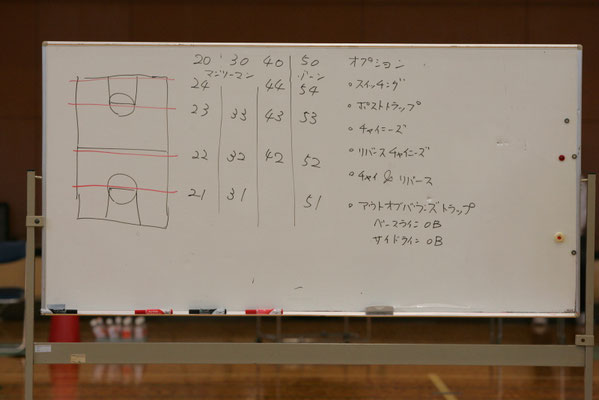 20 30 40 50 オプション
マンツーマン ゾーン
24 44 54 ・スイッチング
23 33 43 53 ・ポストトラップ
・チャイニーズ
22 32 42 52 ・リバースチャイニーズ
・チャイ & リバース
21 31 51 ・アウトオブバウンズトラップ
ベースライン OB
サイドライン OB